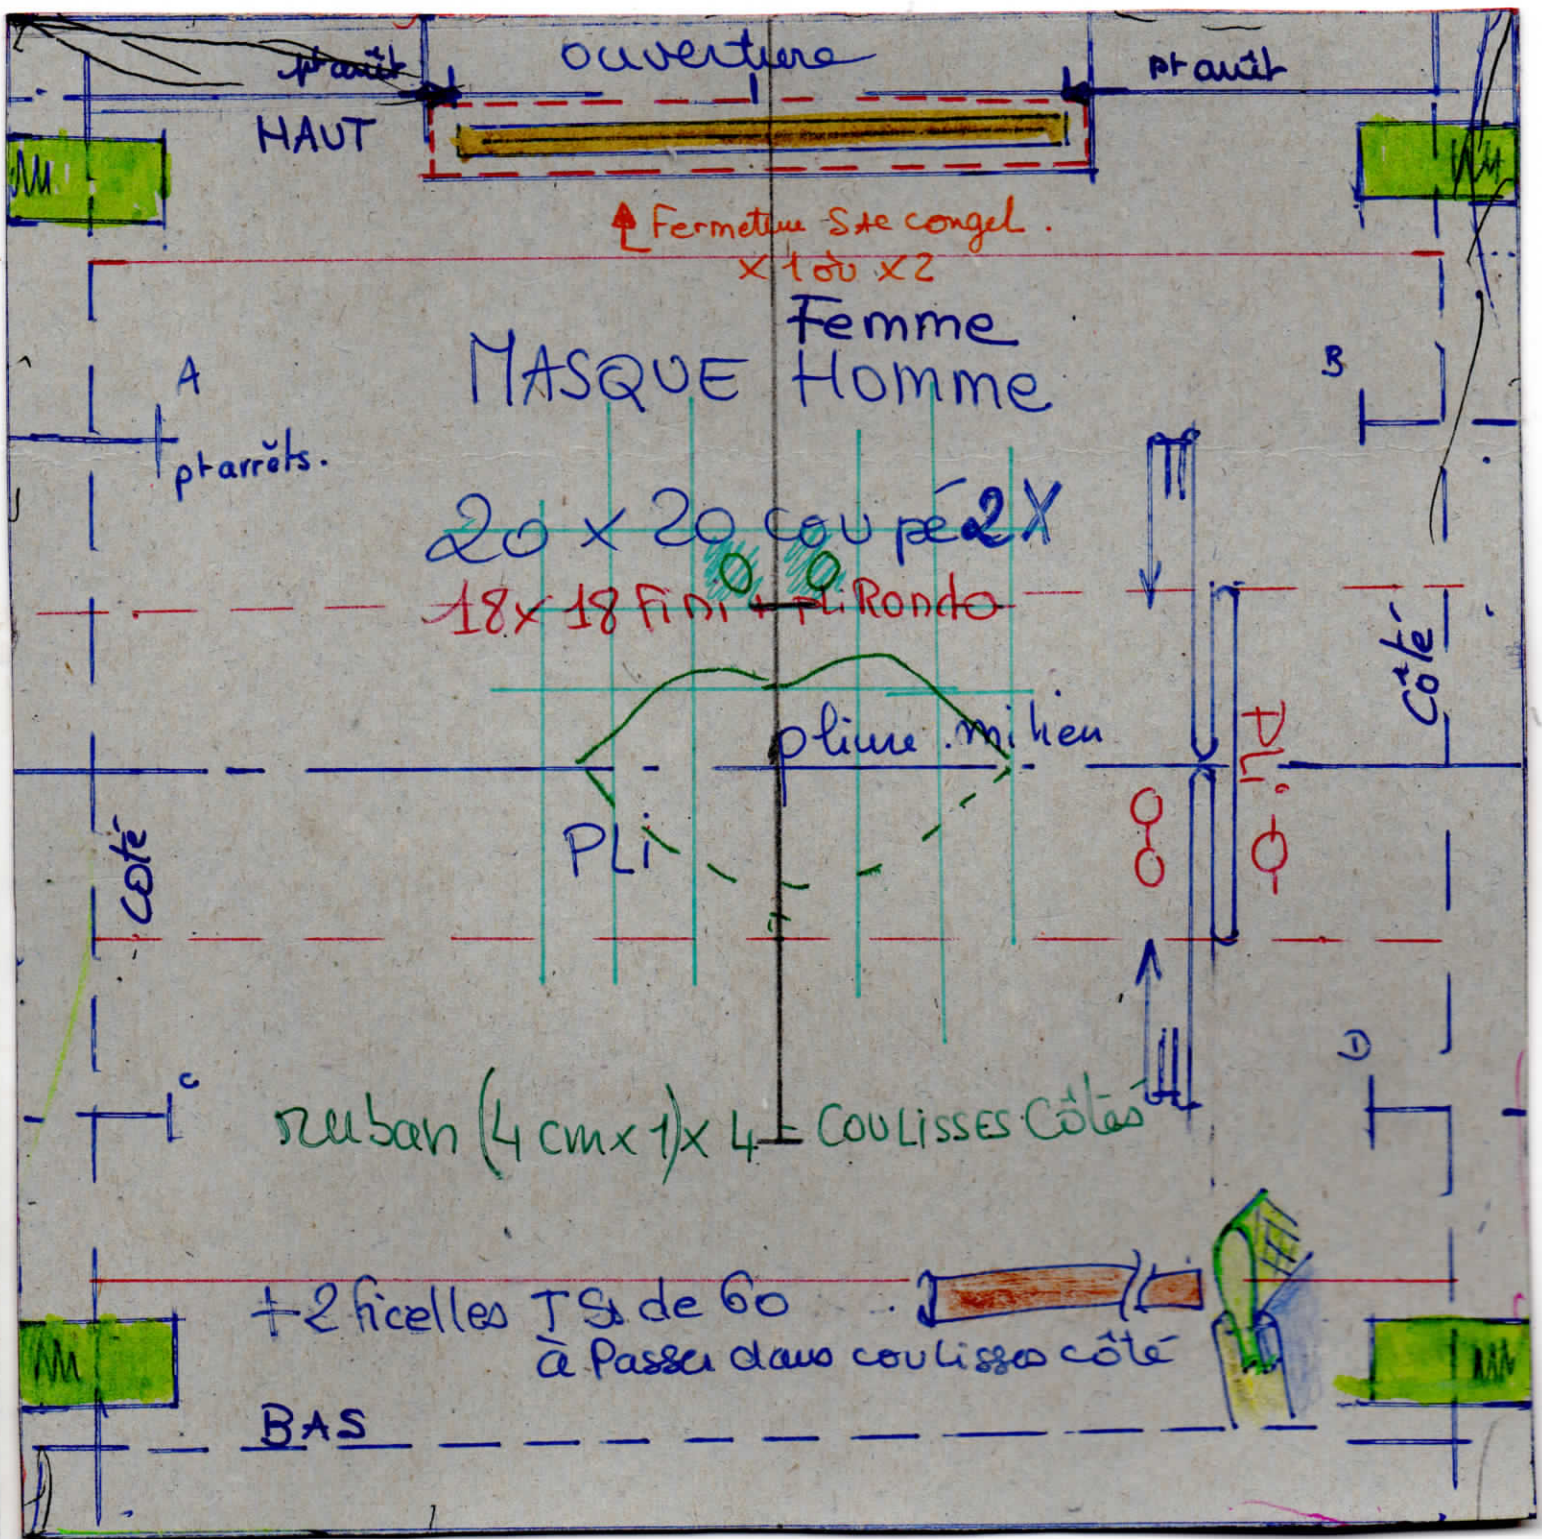 ouverture
pt arrêt
pt arrêt
HAUT
Fermeture Ste congel.
x 1 où x2
Femme
MASQUE Homme
A
B
pt arrêts.
20 x 20 coupé 2X
18 x 18 Fini + Pli Rondo
Côté
pliure milieu
Pli.
Côté
PLi
C
D
ruban (4 cm x 1) x 4 - COULISSES Côtés
+ 2 ficelles TS de 60
à Passer dans coulisses côté
BAS